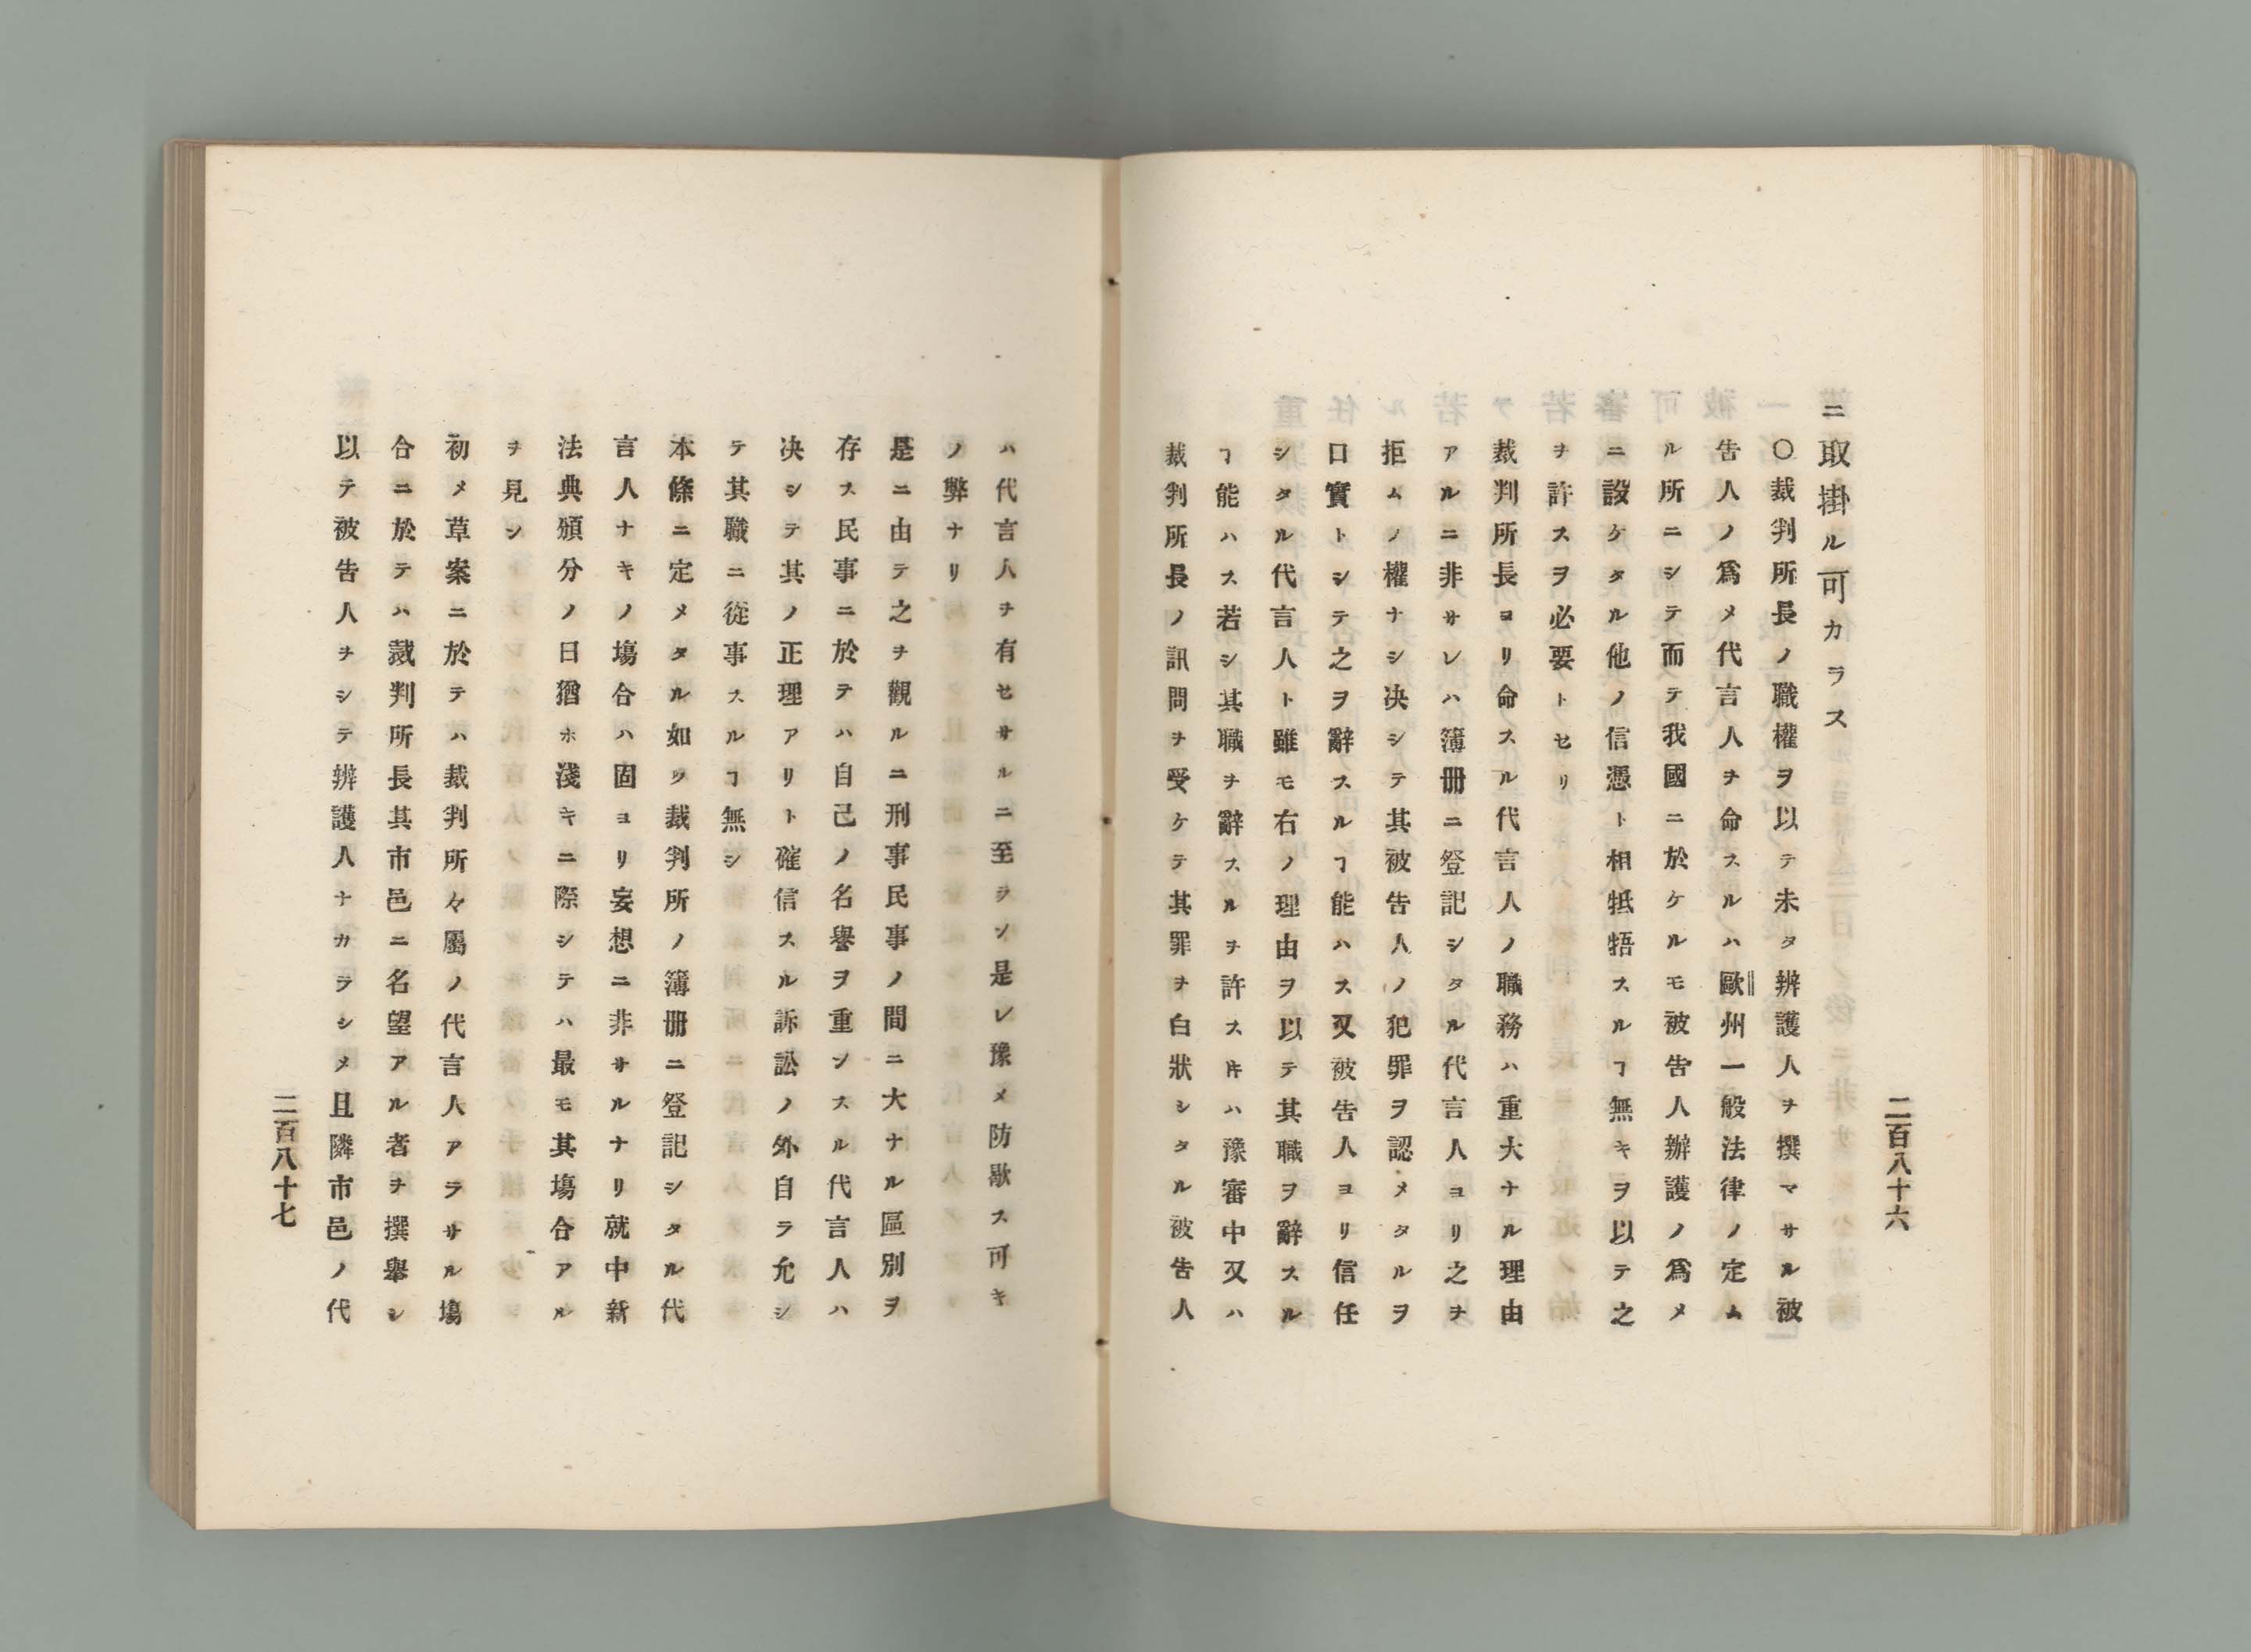 二百八十六
ニ取掛ル可カラス
〇裁判所長ノ職權ヲ以テ未タ辨護人ヲ撰マサル被
告人ノ爲メ代言人ヲ命スルハ歐州一般法律ノ定ム
ル所ニシテ而テ我國ニ於ケルモ被告人辨護ノ爲メ
ニ設ケタル他ノ信憑ト相牴牾スルヿ無キヲ以テ之
ヲ許スヲ必要トセリ
裁判所長ヨリ命スル代言人ノ職務ハ重大ナル理由
アルニ非サレハ簿冊ニ登記シタル代言人ヨリ之ヲ
拒ムノ權ナシ决シテ其被告人ノ犯罪ヲ認メタルヲ
口實トシテ之ヲ辭スルヿ能ハス又被告人ヨリ信任
シタル代言人ト雖モ右ノ理由ヲ以テ其職ヲ辭スル
ヿ能ハス若シ其職ヲ辭スルヲ許スキハ豫審中又ハ
裁判所長ノ訊問ヲ受ケテ其罪ヲ白狀シタル被告人
ハ代言人ヲ有セサルニ至ラン是レ豫メ防歇ス可キ
ノ弊ナリ
是ニ由テ之ヲ觀ルニ刑事民事ノ間ニ大ナル區別ヲ
存ス民事ニ於テハ自己ノ名譽ヲ重ンスル代言人ハ
决シテ其ノ正理アリト確信スル訴訟ノ外自ラ允シ
テ其職ニ從事スルヿ無シ
本條ニ定メタル如ク裁判所ノ簿冊ニ登記シタル代
言人ナキノ塲合ハ固ヨリ妄想ニ非サルナリ就中新
法典頒分ノ日猶ホ淺キニ際シテハ最モ其塲合アル
ヲ見ン
初メ草案ニ於テハ裁判所々屬ノ代言人アラサル塲
合ニ於テハ裁判所長其市邑ニ名望アル者ヲ撰舉シ
以テ被告人ヲシテ辨護人ナカラシメ且隣市邑ノ代
二百八十七